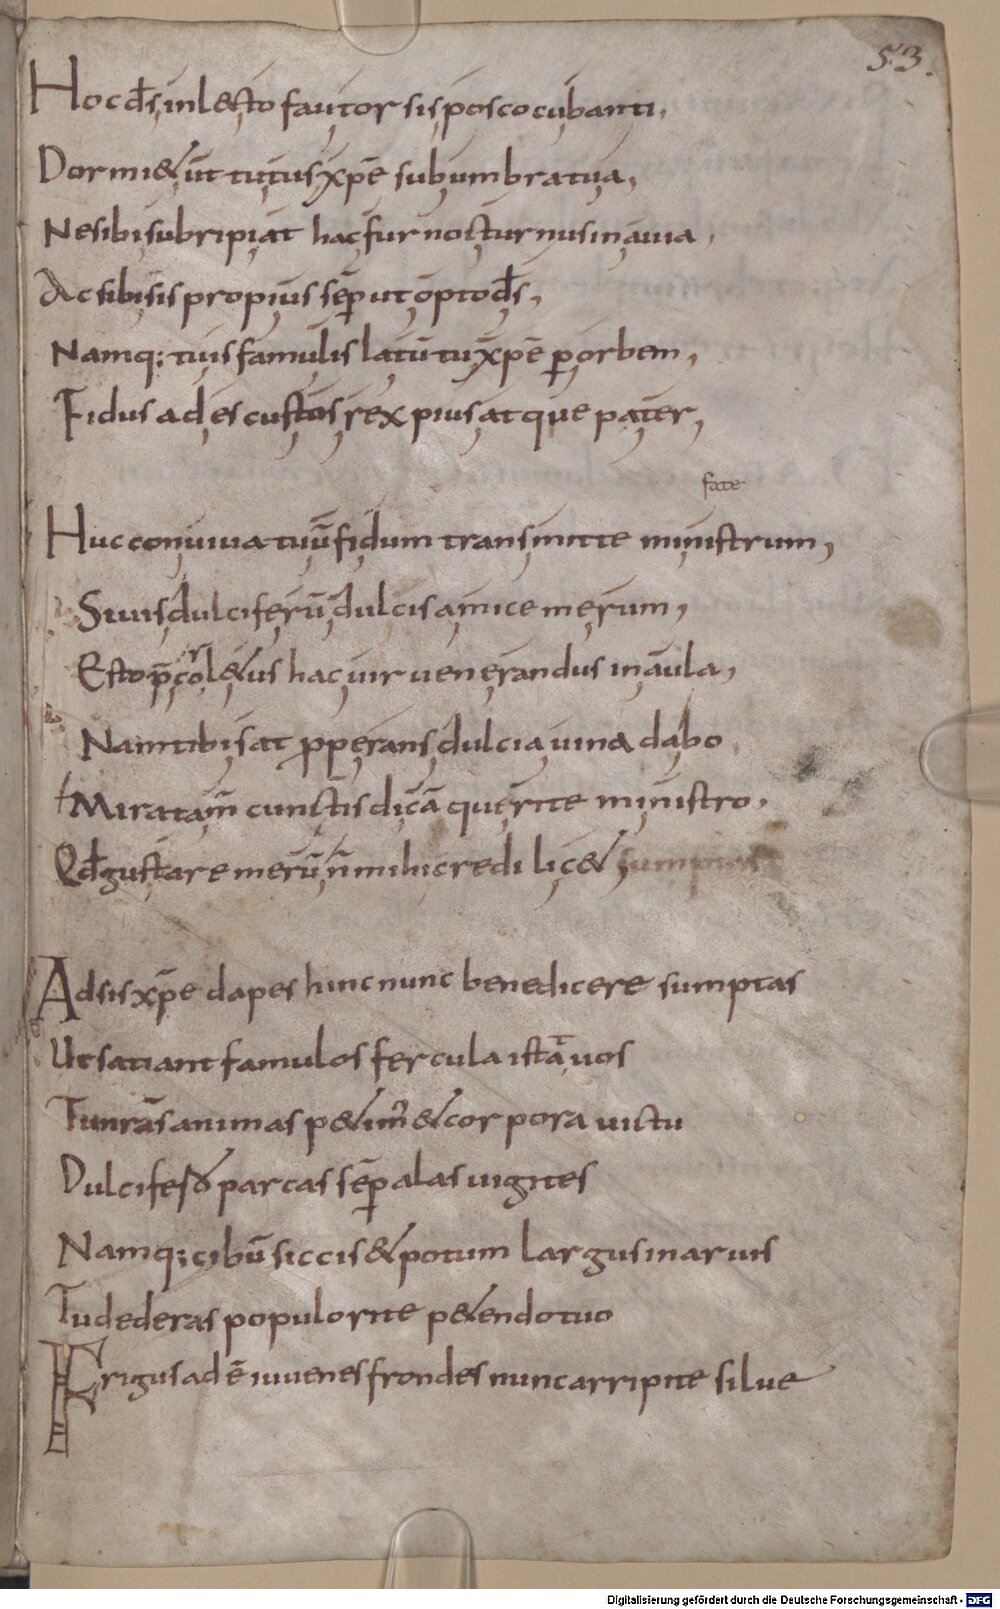 53.
Hoc d̄s in l&to fautor sis posco cubanti,
Dormi& ut tutus xp̄e sub umbra tua,
Ne sibi subripiat hac fur nocturnus in aula,
Ac sibi sis propius sēp ut opto d̄s,
Namq: tuis famulis latū tu xp̄e p orbem,
Fidus ades custos rex pius atque pater,
fate
Huc conuiua tuū fidum transmitte ministrum,
Si uis dulciferū dulcis amice merum,
Esto p̄cor l&us hac uir uenerandus in aula,
Nam tibi sat pperans dulcia uina dabo
Mira tam̄ cunctis dicā querite ministro.
Qd̄ gustare merū n̄ mihi credi lic&
Adsis xp̄e dapes hinc nunc benedicere sumptas
Ut satiant famulos fercula ista uos
Tu nrās animas p& im̄ & corpora uictu
Dulcife parcas sēp alas uigites
Namq: cibū siccis & potum largus in aruis
Tu dederas populo rite p&endo tuo
Frigus adē iuuenes frondes nunc arripite silue
Digitalisierung gefördert durch die Deutsche Forschungsgemeinschaft - DFG